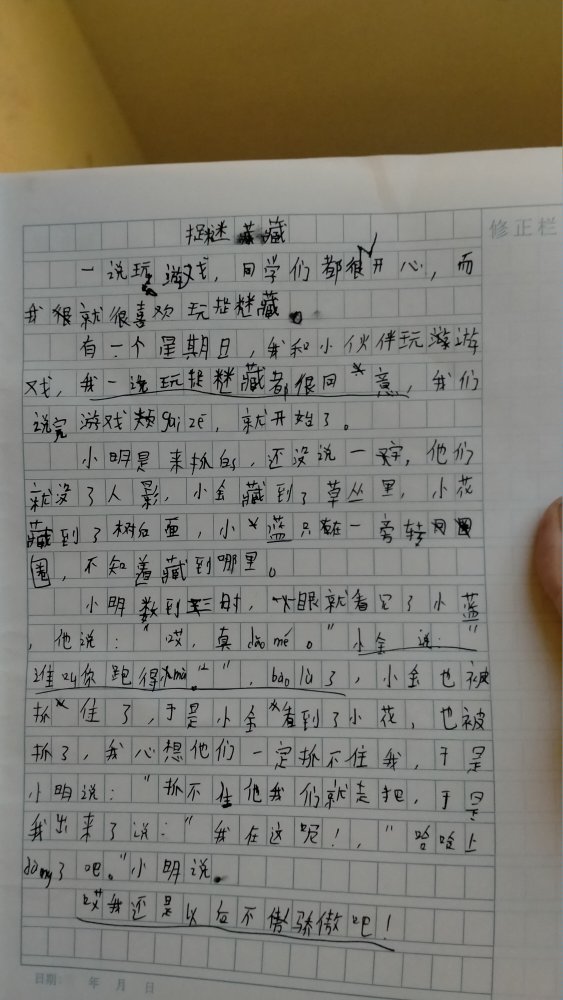 捉迷藏
修正栏
一说玩游戏，同学们都很开心，而
我很就很喜欢玩捉迷藏。
有一个星期日，我和小伙伴玩游游
戏，我一说玩捉迷藏都很同意，我们
说完游戏规guī zé，就开始了。
小明是来抓的，还没说一字，他们
就没了人影，小金藏到了草丛里，小花
藏到了树后面，小蓝只在一旁转圈
圈，不知着藏到哪里。
小明数到三时，一眼就看见了小蓝
，他说："哎，真dǎo méi。"小金说："
谁叫你跑得慢。"，bào lù了，小金也被
抓住了，于是小金看到了小花，也被
抓了，我心想他们一定抓不住我，于是
小明说："抓不住他我们就走把，于是
我出来了说："我在这呢！，"哈哈上
dàng了吧。"小明说。
哎我还是以后不傲骄傲吧！
日期： 年 月 日